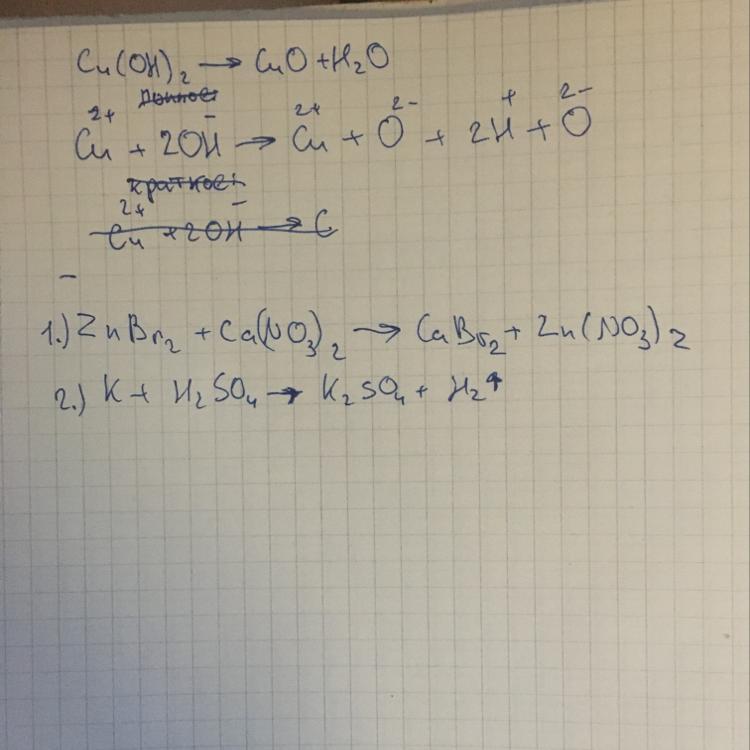 Cu(OH)₂ → CuO + H₂O
Cu²⁺ + 2OH⁻ → Cu²⁺ + O²⁻ + 2H⁺ + O²⁻
краткое
Cu²⁺ + 2OH⁻ → C
1.) ZnBr₂ + Ca(NO₃)₂ → CaBr₂ + Zn(NO₃)₂
2.) K + H₂SO₄ → K₂SO₄ + H₂↑